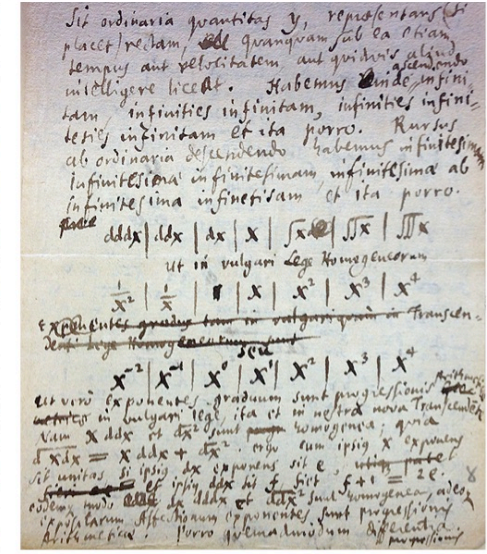 Sit ordinaria quantitas y, repræsentans (si
placet) rectam, quanquam sub ea etiam
tempus aut velocitatem, aut quidvis aliud
intelligere liceat. Habemus inde ascendendo infini-
tam, infinities infinitam, infinities infini-
ties infinitam et ita porro. Rursus
ab ordinaria descendendo habemus infinitesimam
infinitesima infinitesimam, infinitesima ab
infinitesima et ita porro.
dddx | ddx | dx | x | ∫x | ∫∫x | ∫∫∫x
ut in vulgari Lege Homogeneorum
1/x² | 1/x | 1 | x | x² | x³ | x⁴
Exponentes gradus tam in vulgari quam in Transcen-
denti Lege Homogeneorum sunt
seu
x⁻² | x⁻¹ | x⁰ | x¹ | x² | x³ | x⁴
Ut vero exponentes graduum sunt progressionis Arithmeticæ
in vulgari lege, ita et in nostra nova Transcendente
Nam x ddx et dx² sunt homogenea; quia
d xdx = x ddx + dx². ergo cum ipsius x exponens
sit unitas, si ipsius dx exponens sit e,
et ipsius ddx sit f, fiet f+1 = 2e.
eodem modo dx dddx et ddx² sunt homogenea, adeoque
Affectionum exponentes sunt progressionis
Arithmeticæ. Porro quemadmodum differentia
progressionis
8